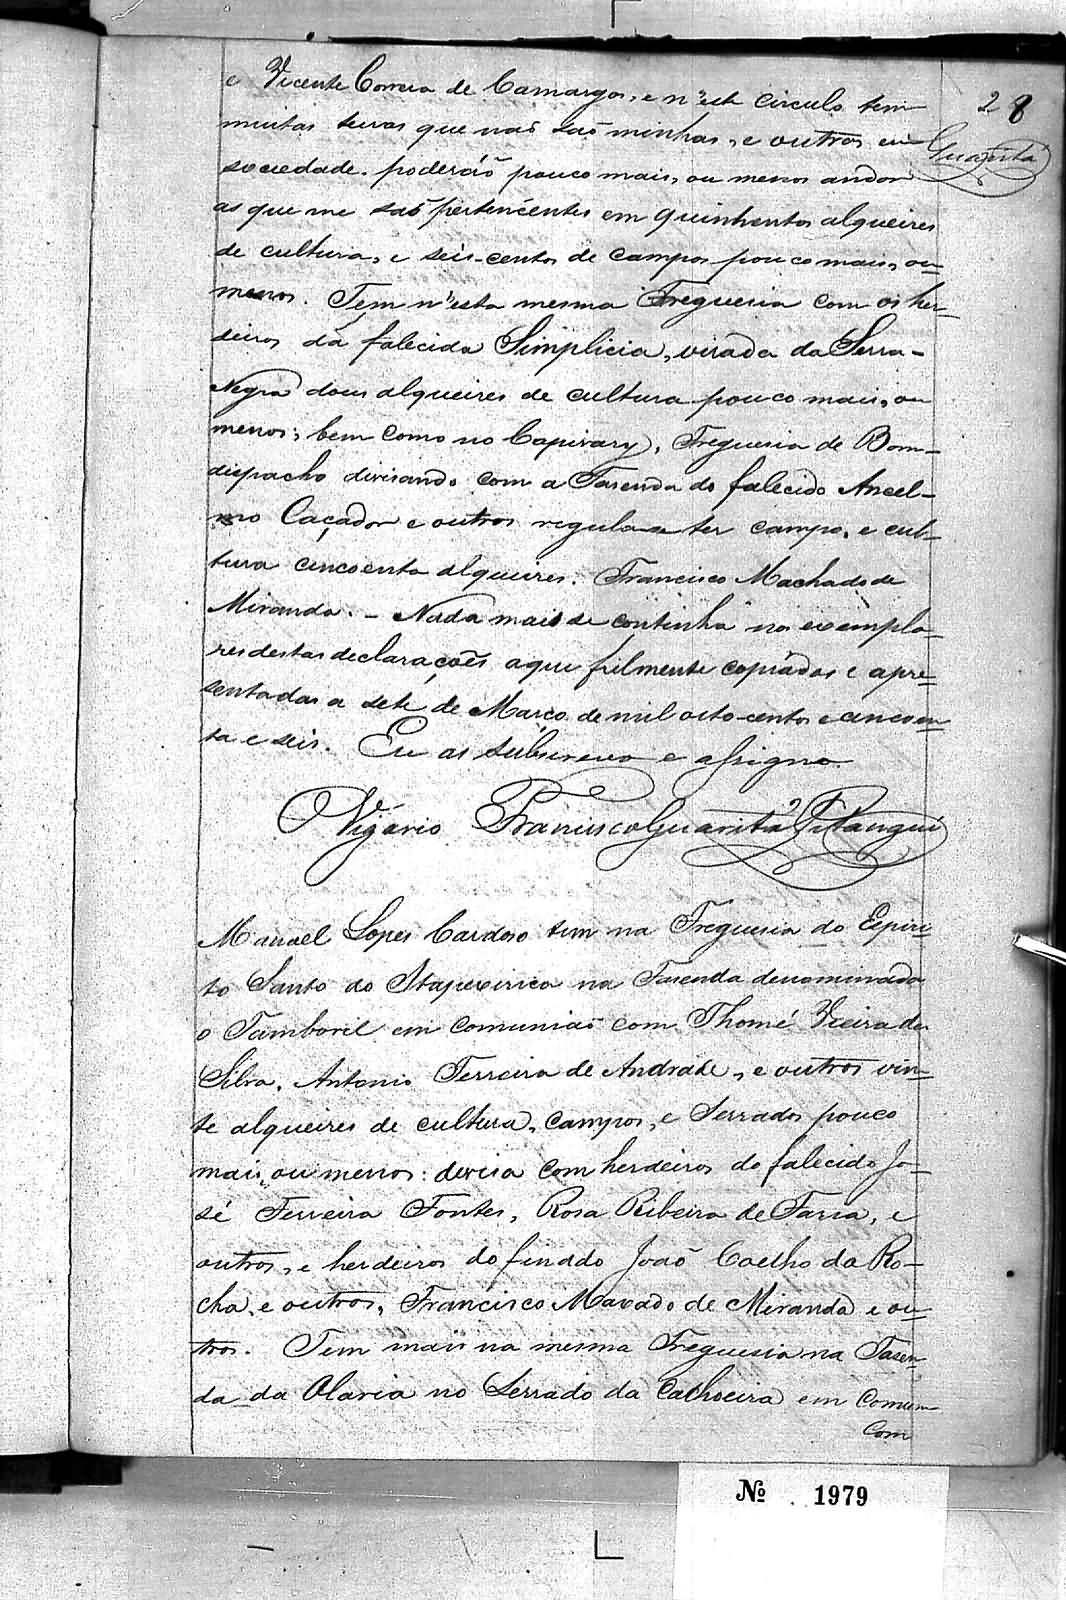 28
Guarita
e Vicente Correia de Camargos, e n'este circulo tem
muitas terras que não são minhas, e outras em
sociedade. poderáõ pouco mais, ou menos andar
as que me são pertencentes em quinhentos alqueires
de cultura, e seis-centos de campos pouco mais, ou
menos. Tem n'esta mesma Freguesia com os her-
deiros da falecida Simplicia, virada da Serra-
Negra dous alqueires de cultura pouco mais, ou
menos; bem como no Capivary, Freguesia de Bom-
dispacho divisando com a Fasenda do falecido Ancel-
mo Caçador e outros regula a ter campo, e cul-
tura cincoenta alqueires. Francisco Machado de
Miranda. - Nada mais se continha nos exempla-
res destas declarações aqui fielmente copiadas e apre-
sentadas a sete de Março de mil oito-centos e cincoen-
ta e seis. Eu as subscrevo e assigno.
O Vigario Francisco Guarita Pitangui
Manoel Lopes Cardoso tem na Freguesia do Espiri-
to Santo do Itapexirica na Fasenda denominada
o Tamboril em comunião com Thomé Vieira da
Silva, Antonio Ferreira de Andrade, e outros vin-
te alqueires de cultura, campos, e Serrados pouco
mais, ou menos: devisa com herdeiros do falecido Jo-
sé Ferreira Fontes, Rosa Ribeira de Faria, e
outros, e herdeiros do finado João Coelho da Ro-
cha, e outros, Francisco Maxado de Miranda e ou-
tros. Tem mais na mesma Freguesia na Fasen-
da da Olaria no Serrado da Cachoeira em comum
com
Nº 1979